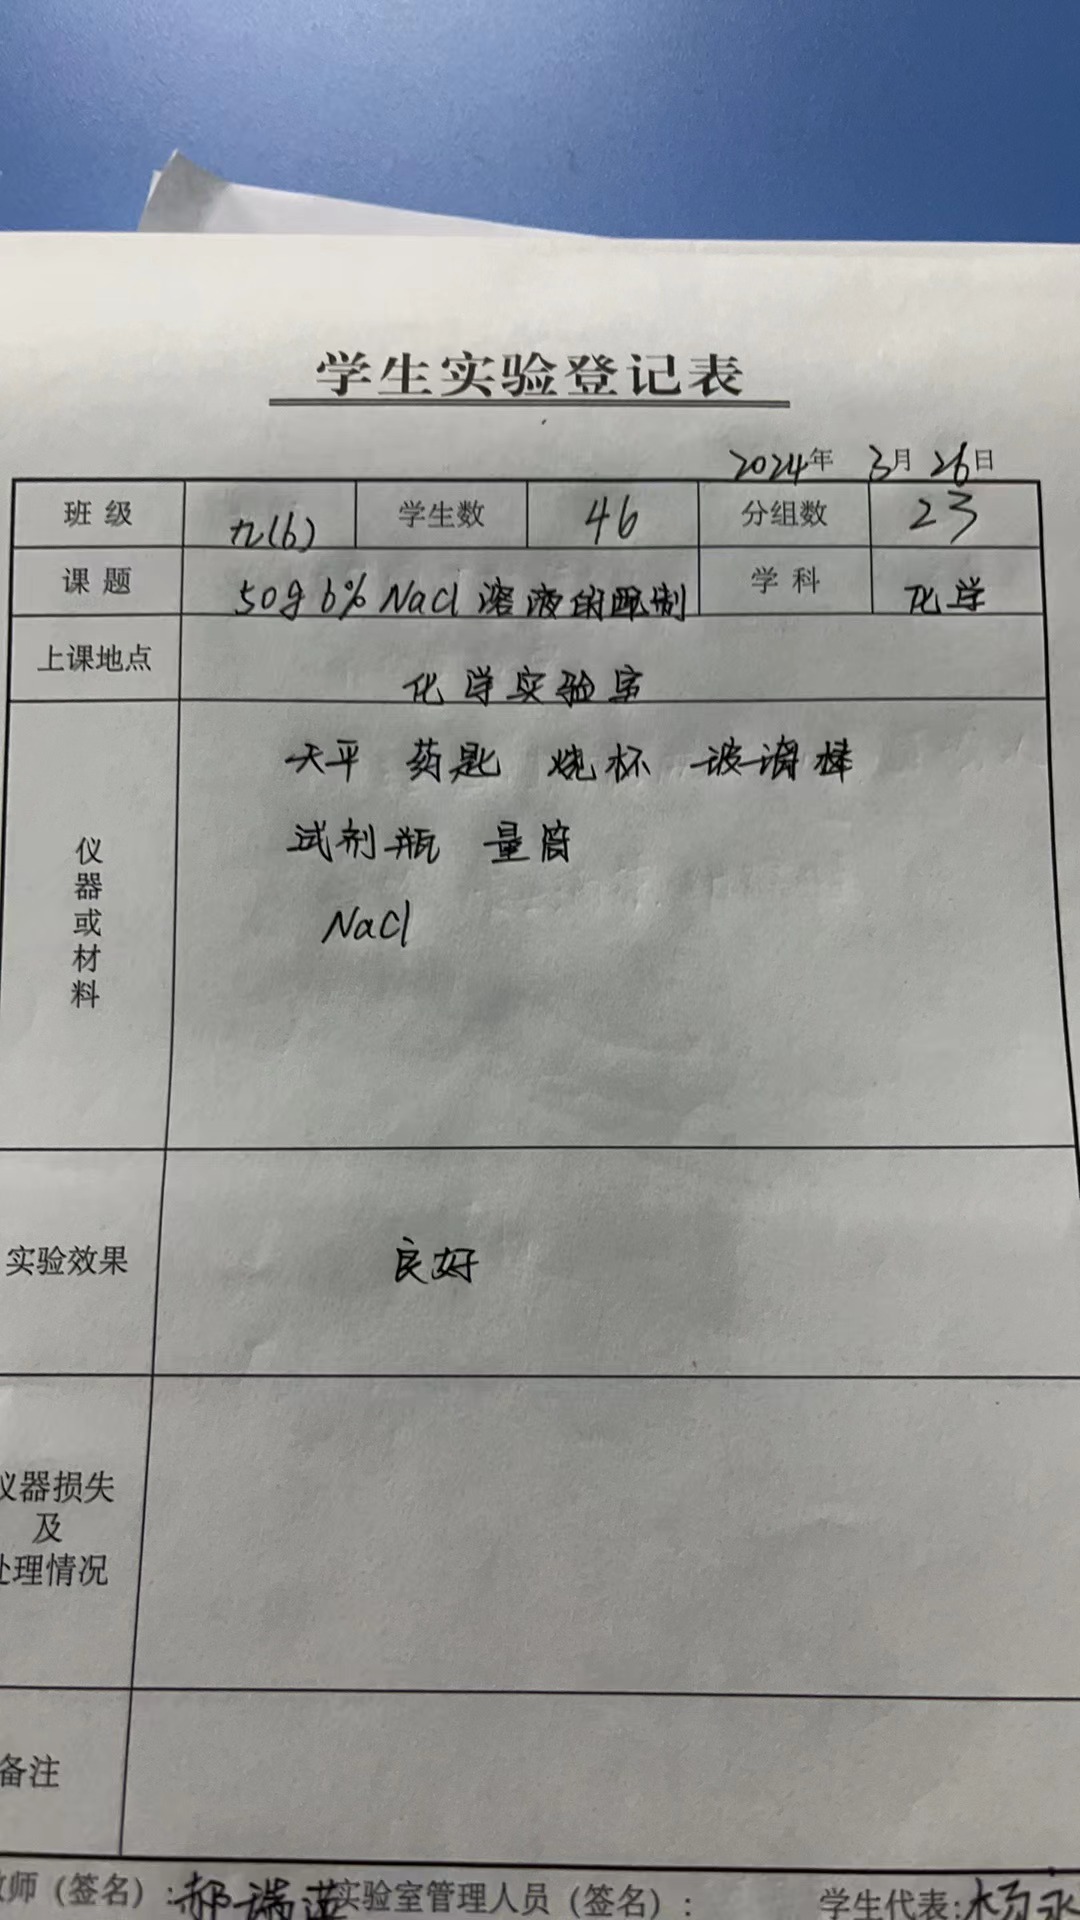 学生实验登记表
2024年 3月 26日
班级 九(6) 学生数 46 分组数 23
课题 50g 6% NaCl 溶液的配制 学科 化学
上课地点 化学实验室
仪器或材料
天平 药匙 烧杯 玻璃棒
试剂瓶 量筒
NaCl
实验效果 良好
仪器损失
及
处理情况
备注
教师（签名）：郝瑞莲 实验室管理人员（签名）： 学生代表:杨